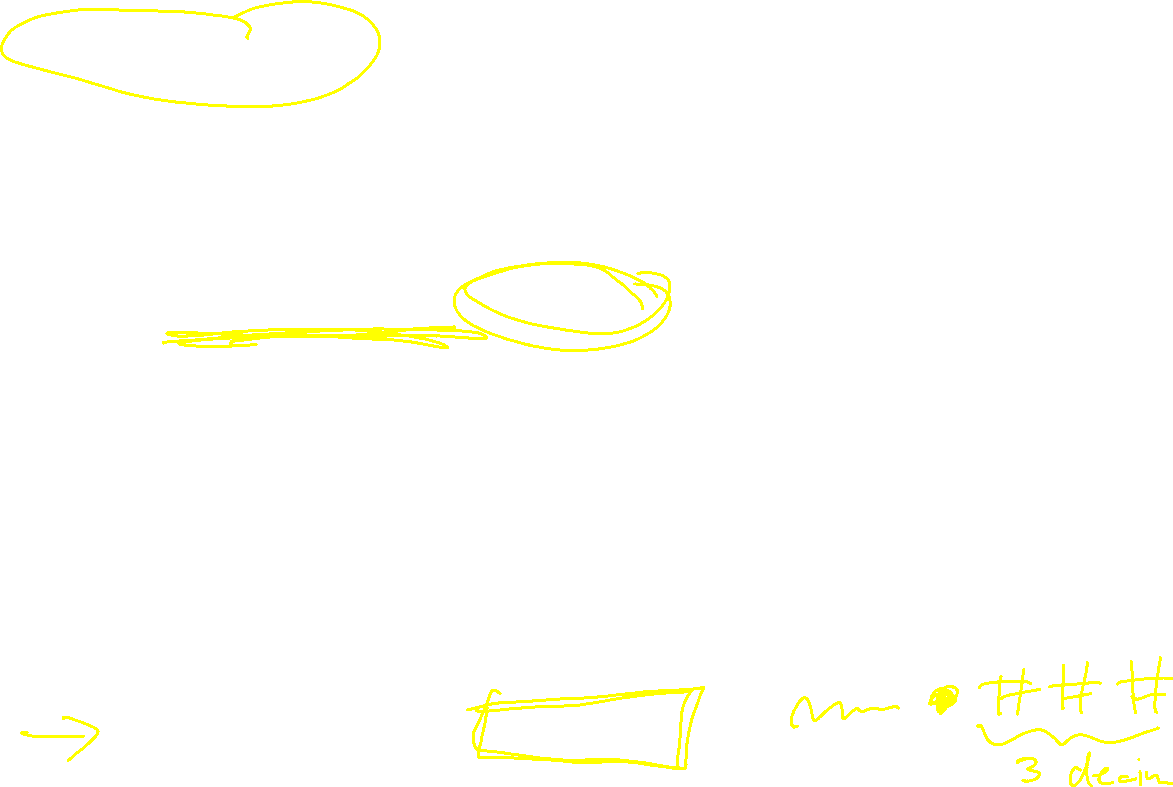 • # # #
3 decim